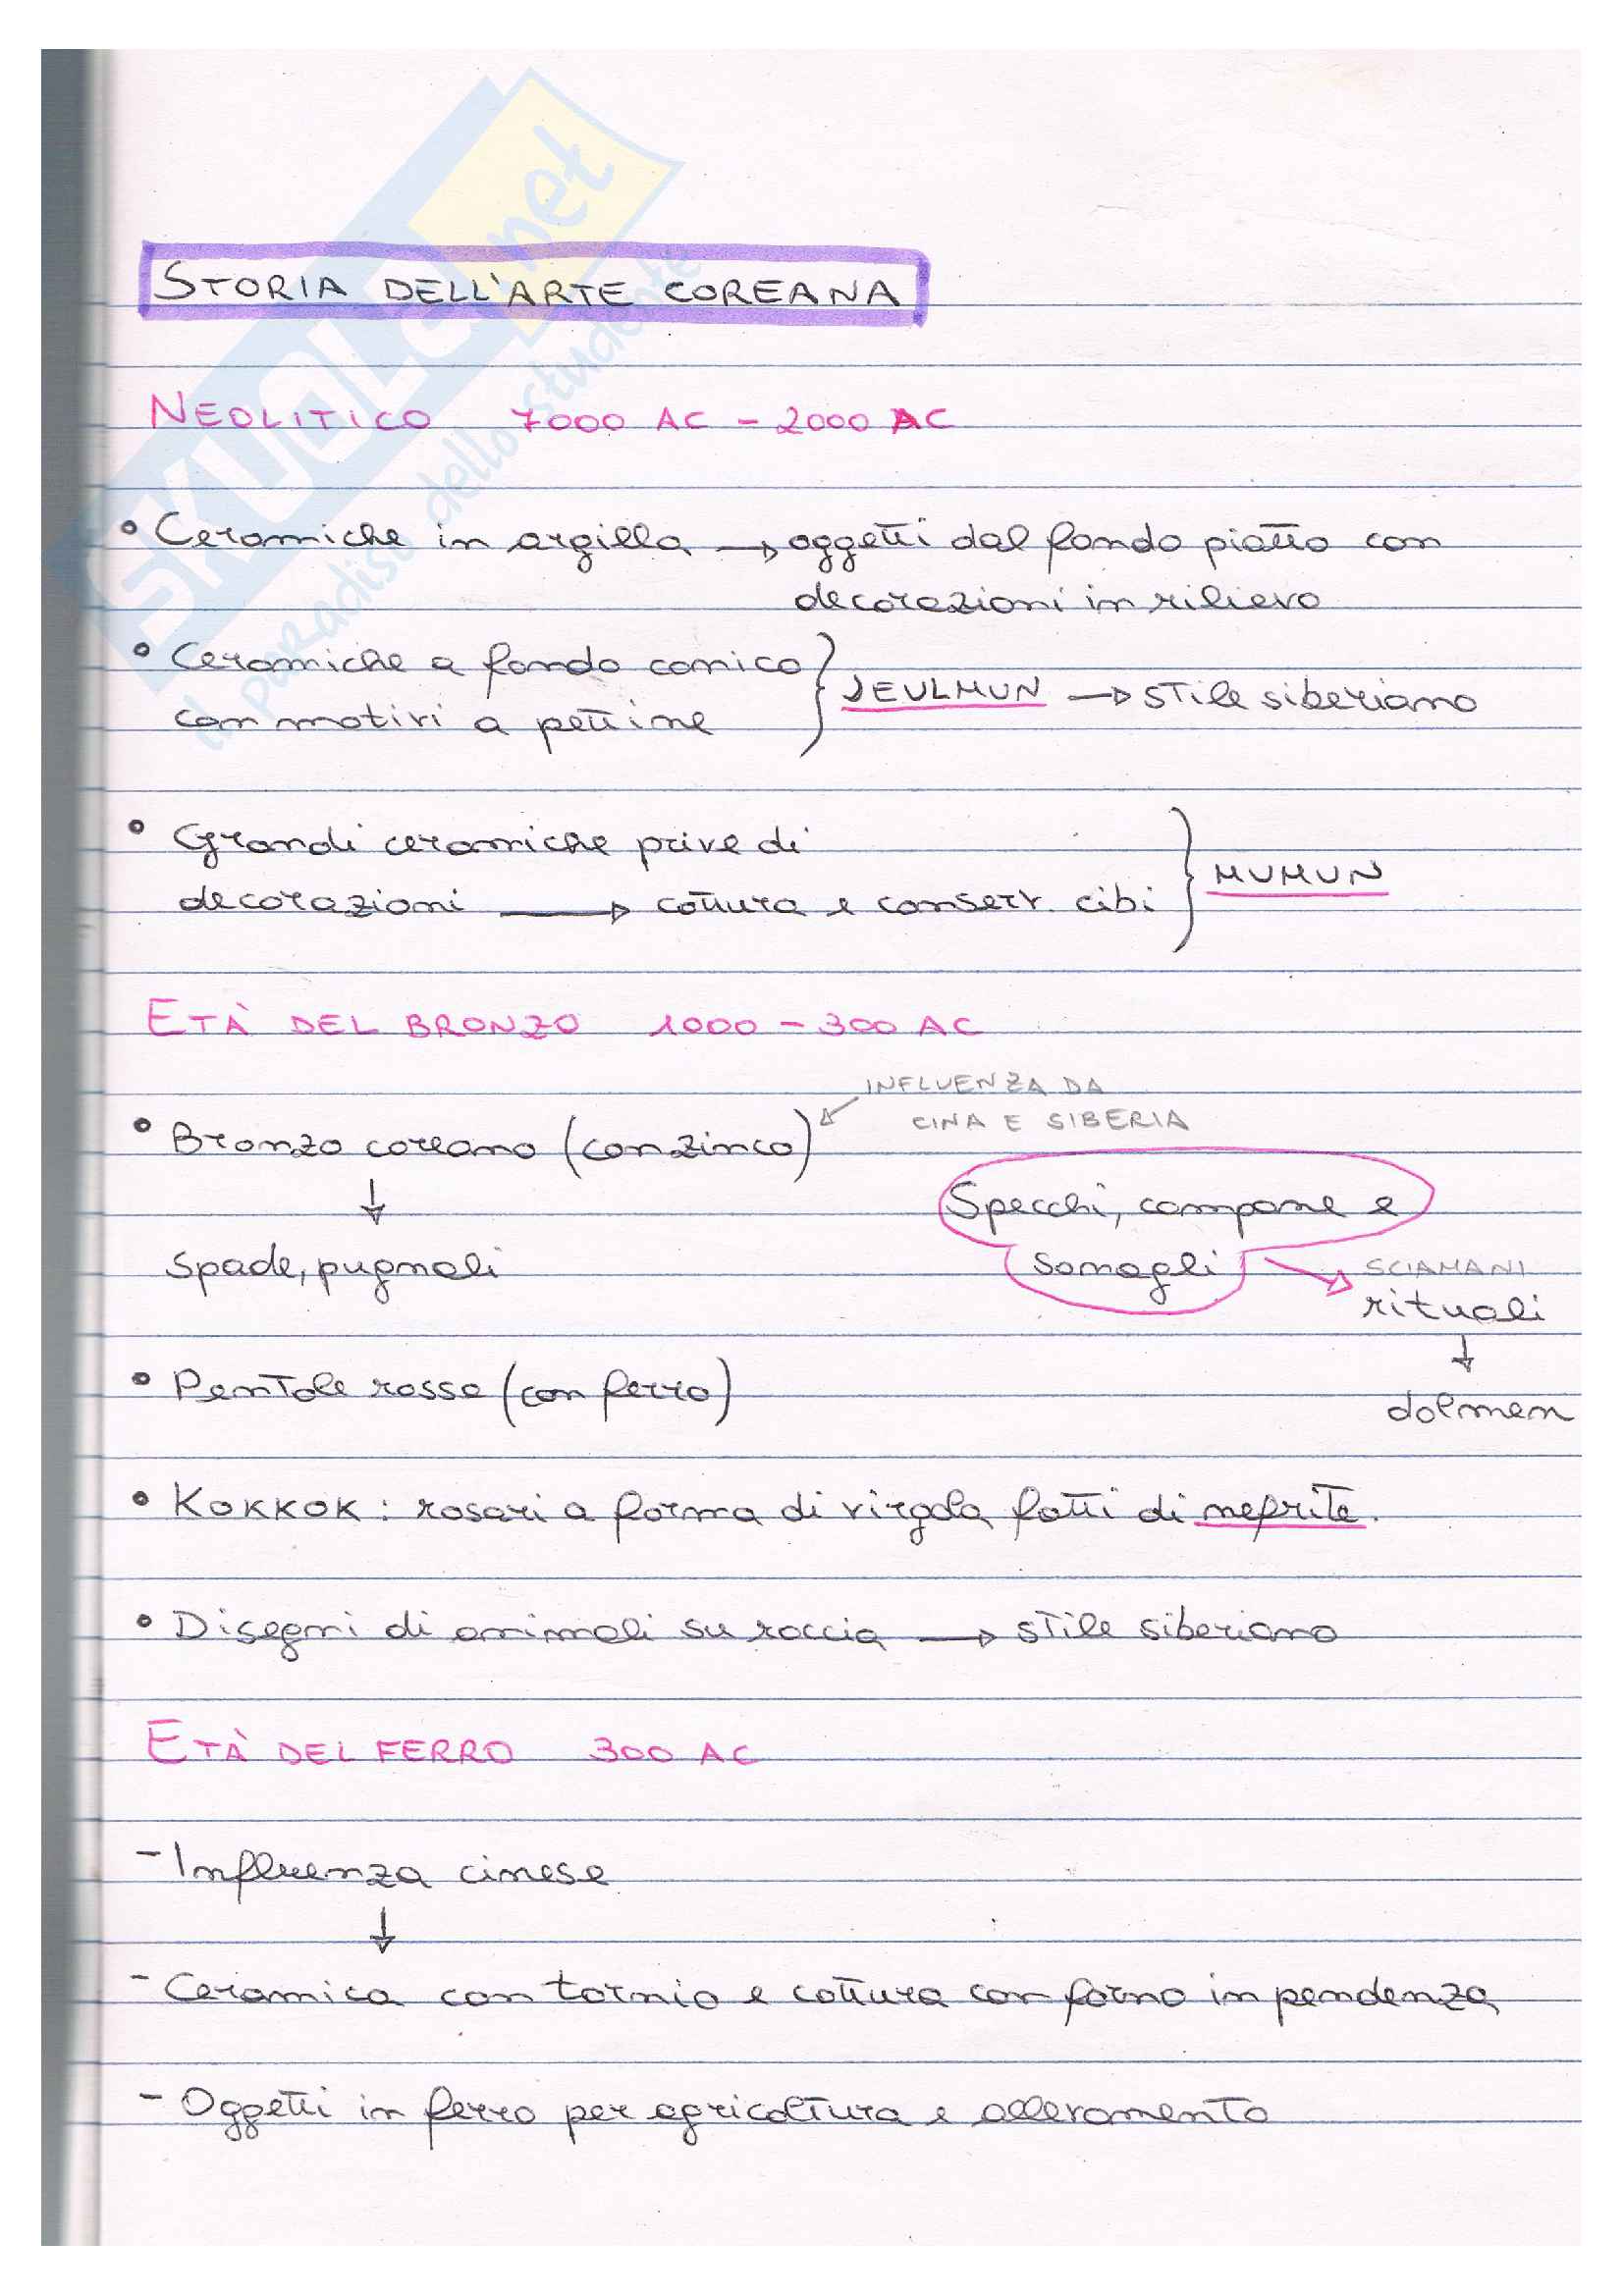 SKUOLA.net
il paradiso dello studente
STORIA DELL'ARTE COREANA
NEOLITICO 7000 AC - 2000 AC
• Ceramiche in argilla → oggetti dal fondo piatto con
decorazioni in rilievo
• Ceramiche a fondo conico
con motivi a pettine } JEULMUN → stile siberiano
• Grandi ceramiche prive di
decorazioni → cottura e conserv. cibi } MUMUN
ETÀ DEL BRONZO 1000 - 300 AC
INFLUENZA DA
CINA E SIBERIA
• Bronzo coreano (con zinco)
↓
spade, pugnali
Specchi, campane e
sonagli → SCIAMANI
rituali
↓
dolmen
• Pentole rosse (con ferro)
• KOKKOK : rosari a forma di virgola fatti di nefrite.
• Disegni di animali su roccia → stile siberiano
ETÀ DEL FERRO 300 AC
- Influenza cinese
↓
- Ceramica con tornio e cottura con forno in pendenza
- Oggetti in ferro per agricoltura e allevamento